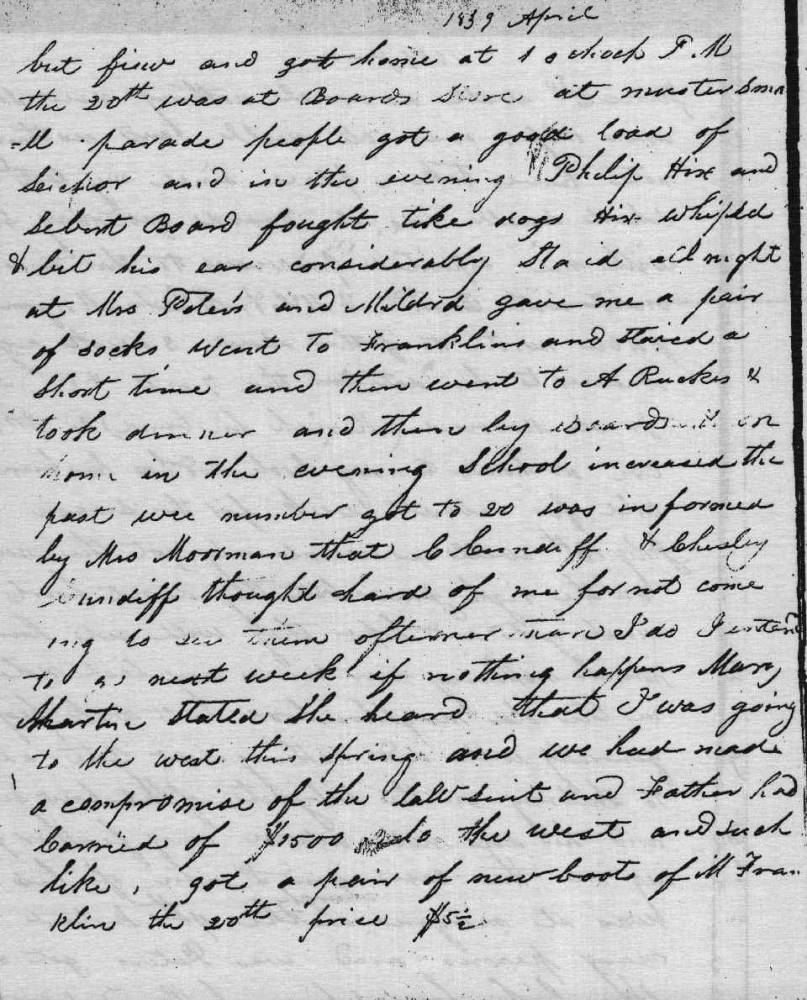 1839 April
but fiew and got home at 1 o chock P.M
the 20th was at Boards Store at muster Sma
=ll parade people got a good load of
Leichor and in the evening Philip Hix and
Sebert Board fought like dogs Hix whiped
& bit his ear considerably Sta id all night
at Mrs Peters and Mildrd gave me a pair
of socks went to Franklins and staied a
short time and then went to A Ruckes &
took dinner and then by Boards & on
home in the evening School increased the
past wee number got to 20 was informed
by Mrs Moorman that C Cundiff & Chesley
Cundiff thought hard of me for not come
ing to see them ofterner than I do I intend
to go next week if nothing happens Mary
Martin stated She heard that I was going
to the west this spring and we had made
a compromise of the law suit and Father had
carried of $1500 to the west and such
like, got a pair of new boot of M Fra
klin the 20th price $5½